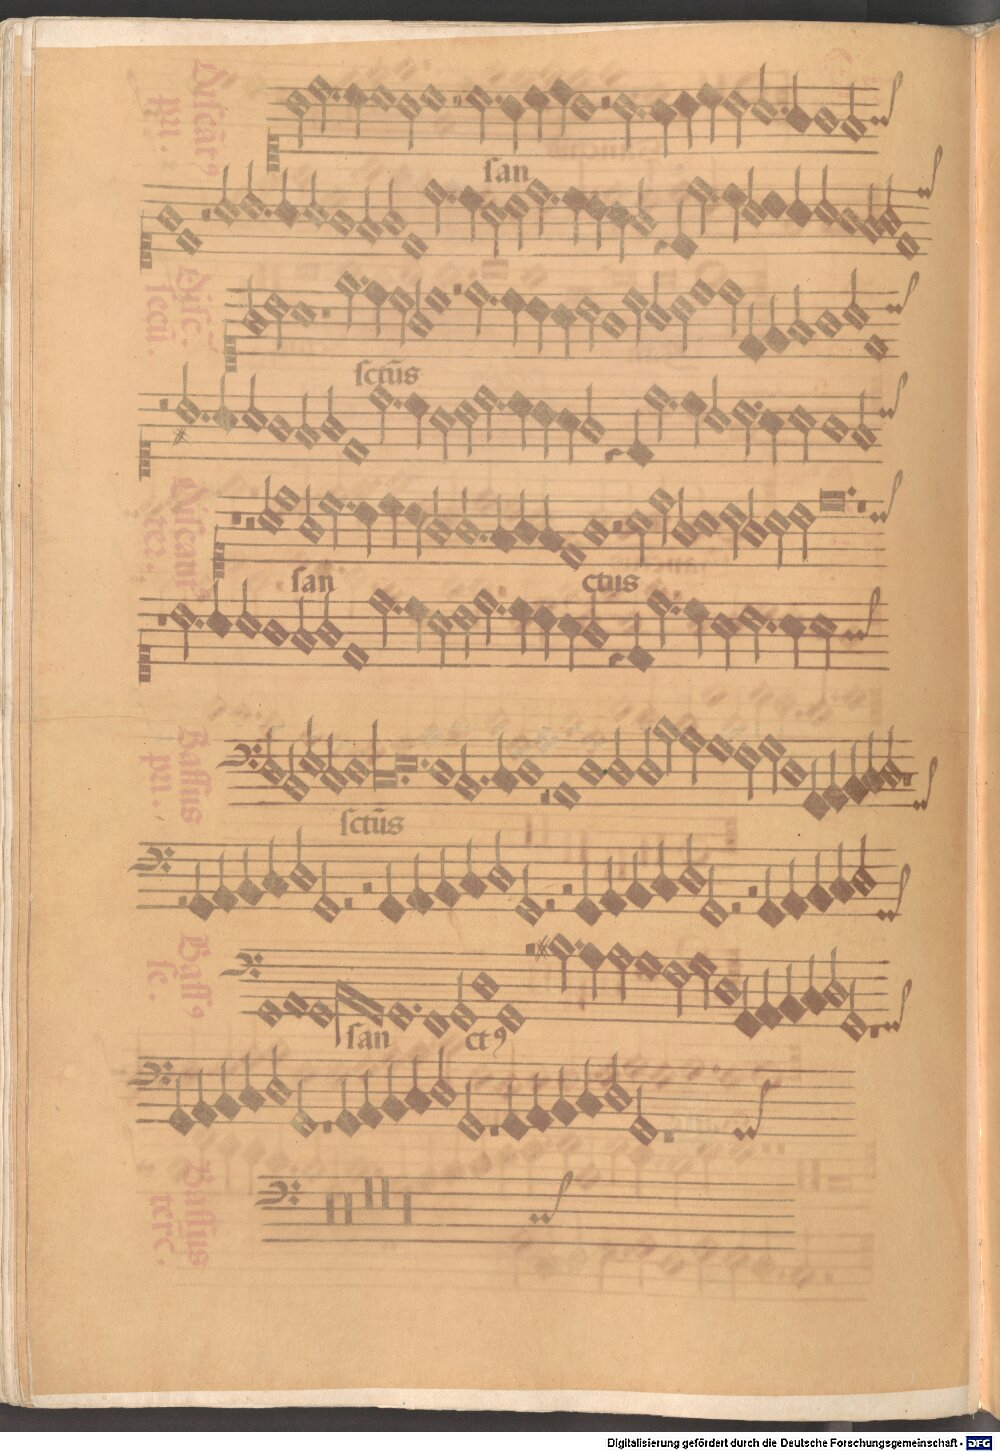 Discāt⁹
pri.
san
Disc.
secū.
sctūs
Discant⁹
ter.
san ctus
Bassus
pri.
sctūs
Bass⁹
se.
san ct⁹
Bassus
terc.
Digitalisierung gefördert durch die Deutsche Forschungsgemeinschaft - DFG